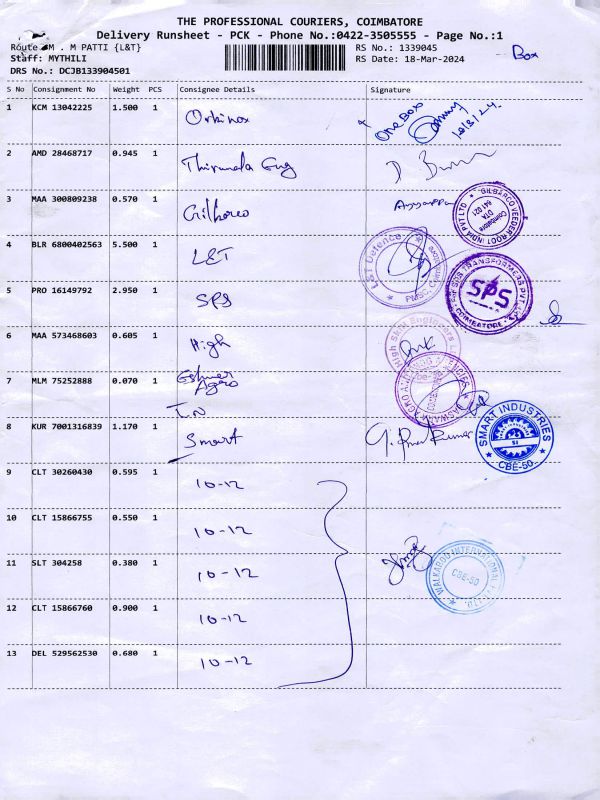 THE PROFESSIONAL COURIERS, COIMBATORE
Delivery Runsheet - PCK - Phone No.:0422-3505555 - Page No.:1
Route M . M PATTI {L&T} RS No.: 1339045 Box
Staff: MYTHILI RS Date: 18-Mar-2024
DRS No.: DCJB133904501
S No Consignment No Weight PCS Consignee Details Signature
1 KCM 13042225 1.500 1 Orbinox One Box
18/3/24
2 AMD 28468717 0.945 1 Thirumala Eng
3 MAA 300809238 0.570 1 Gilbarco Ayyappan
GILBARCO VEEDER ROOT INDIA PVT LTD
Coimbatore
DTA
641 021
4 BLR 6800402563 5.500 1 L&T
L&T Defence
5 PRO 16149792 2.950 1 SPS
SPS TRANSFORMERS PVT.
SPS
COIMBATORE
6 MAA 573468603 0.605 1 High
High Skill Engineers
7 MLM 75252888 0.070 1 Eshwer
Agro
T.N
8 KUR 7001316839 1.170 1 Smart
SMART INDUSTRIES
SI
CBE-50.
9 CLT 30260430 0.595 1 10-12
10 CLT 15866755 0.550 1 10-12
11 SLT 304258 0.380 1 10-12
WALKAROO INTERNATIONAL
CBE-50
12 CLT 15866760 0.900 1 10-12
13 DEL 529562530 0.680 1 10-12